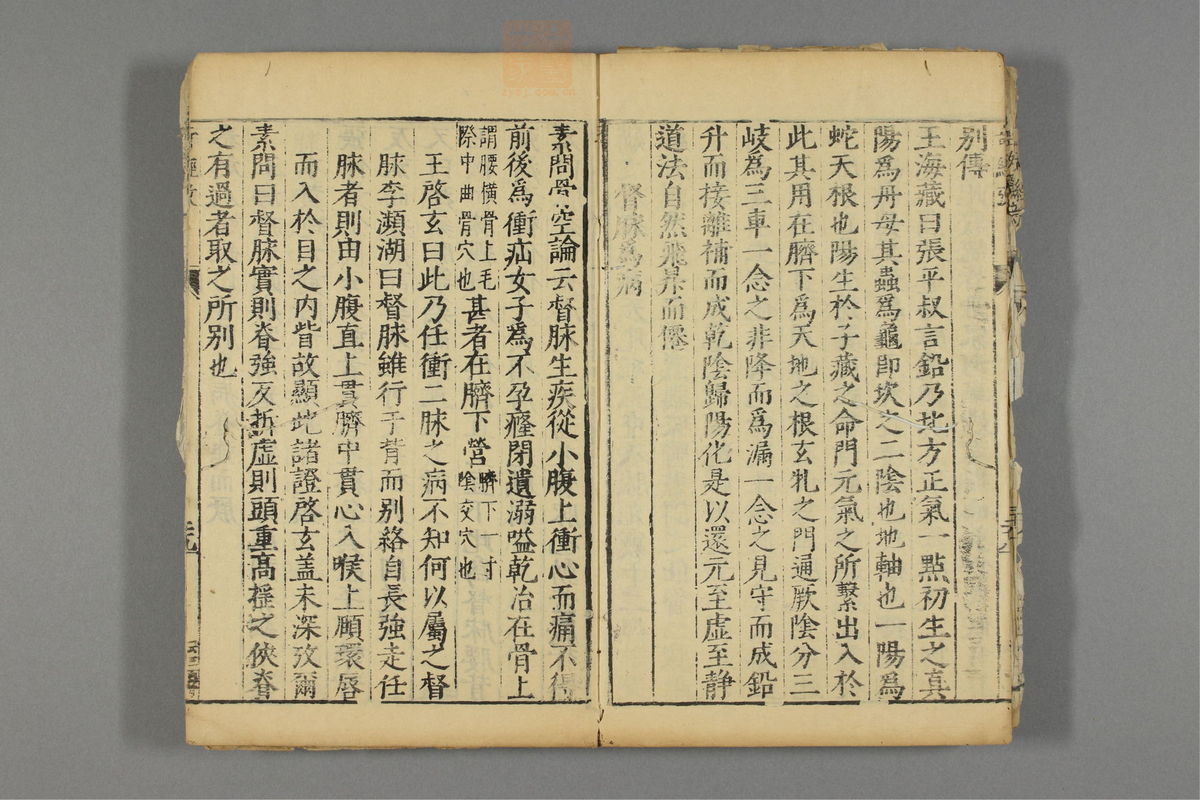 別傳
王海藏曰張平叔言鉛乃北方正氣一點初生之真
陽爲丹母其蟲爲龜卽坎之二陰也地軸也一陽爲
蛇天根也陽生於子藏之命門元氣之所繫出入於
此其用在臍下爲天地之根玄牝之門通厥陰分三
岐爲三車一念之非降而爲漏一念之見守而成鉛
升而接離補而成乾陰歸陽化是以還元至虛至靜
道法自然飛昇而僊
督脉爲病
素問骨空論云督脉生疾從小腹上衝心而痛不得
前後爲衝疝女子爲不孕癃閉遺溺嗌乾治在骨上
謂腰橫骨上毛
際中曲骨穴也
甚者在臍下營
臍下一寸
陰交穴也
王啓玄曰此乃任衝二脉之病不知何以屬之督
脉李瀕湖曰督脉雖行于背而别絡自長強走任
脉者則由小腹直上貫臍中貫心入喉上頤環唇
而入於目之内眥故顯此諸證啓玄盖未深攷爾
素問曰督脉實則脊強反折虛則頭重高搖之俠脊
之有過者取之所别也